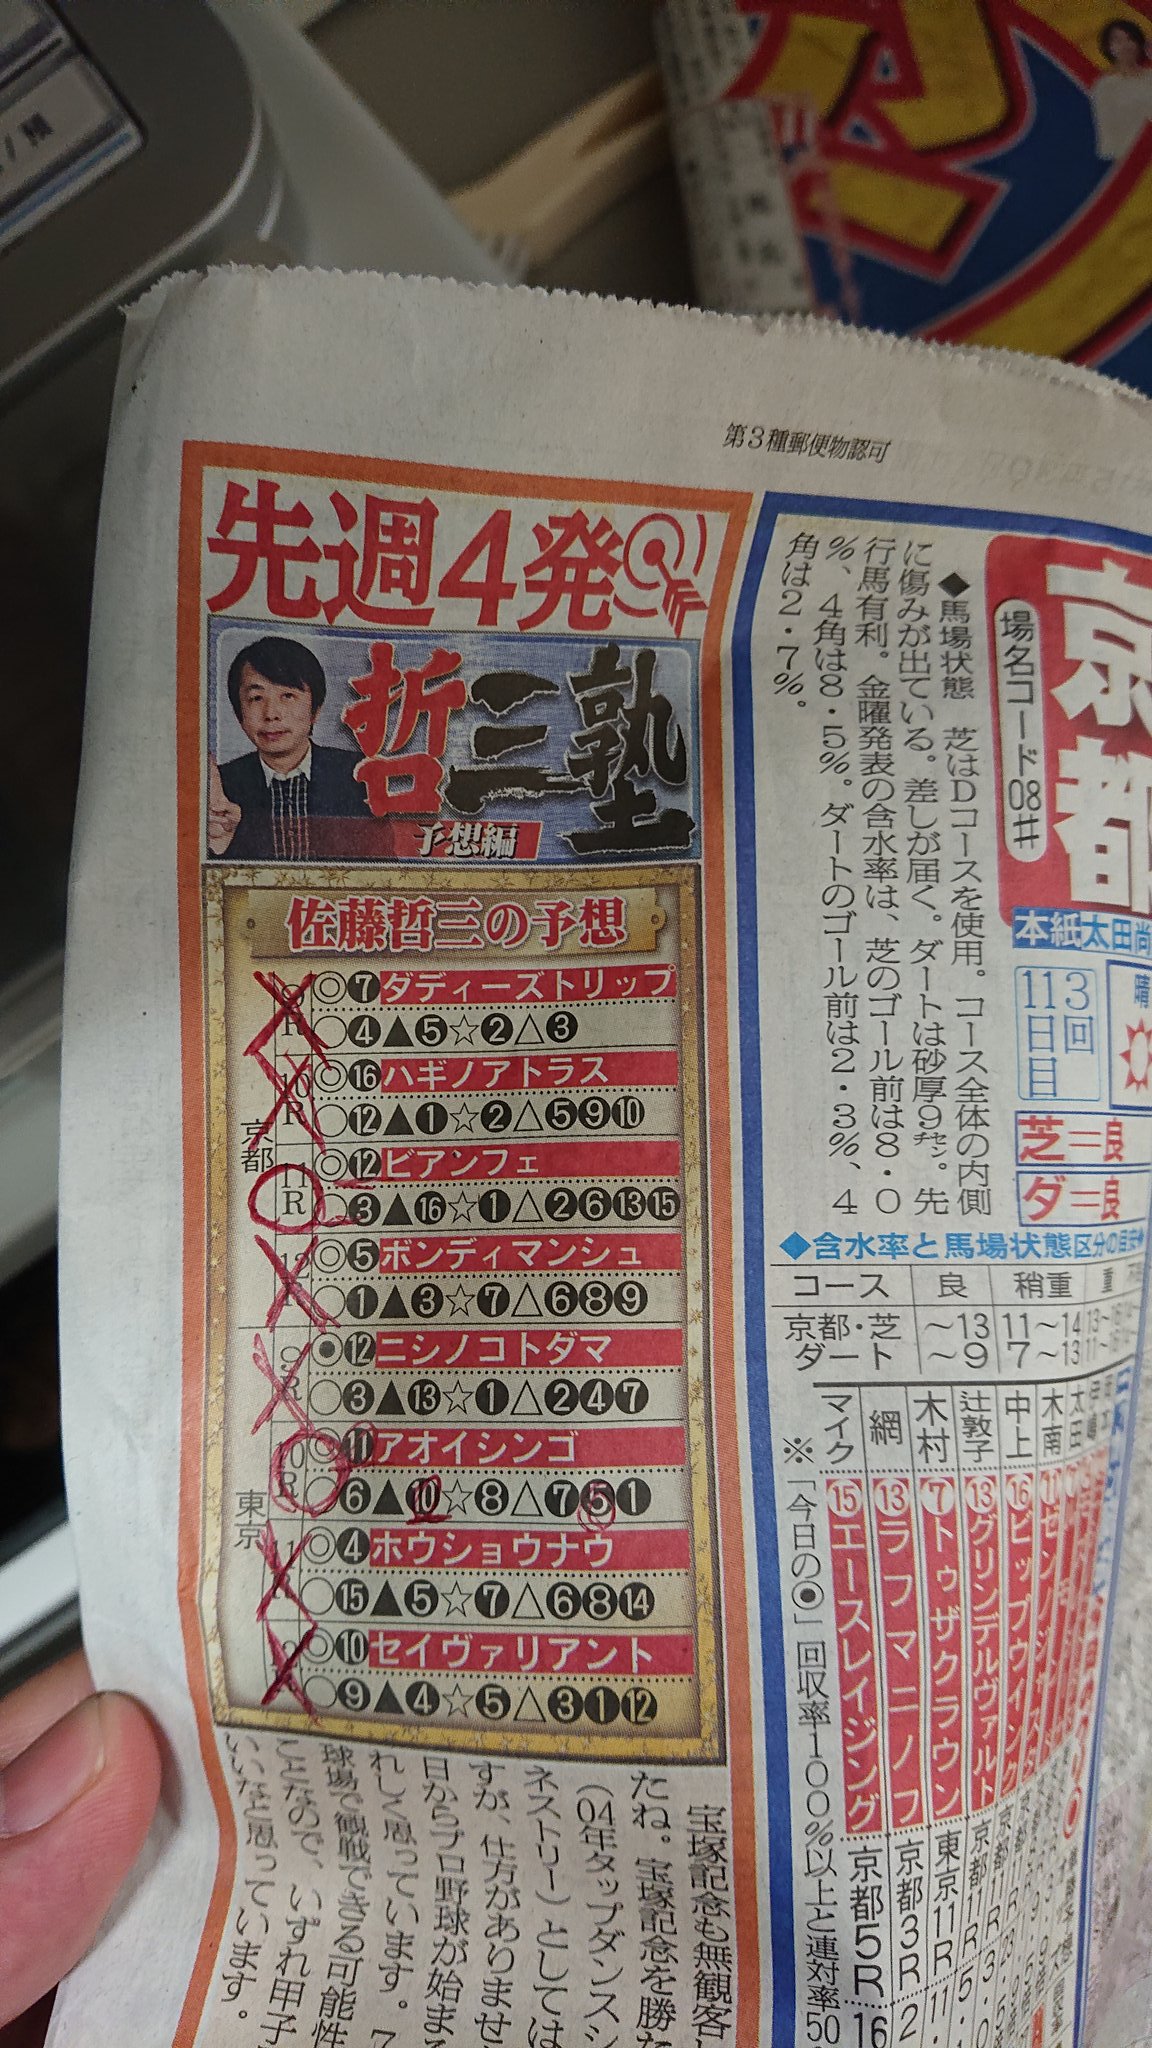 第3種郵便物認可
先週4発
哲三塾
予想編
佐藤哲三の予想
京都
9R ◎❼ダディーズトリップ
○❹▲❺☆❷△❸
10R ◎⓰ハギノアトラス
○⓬▲❶☆❷△❺❾❿
11R ◎⓬ビアンフェ
○❸▲⓰☆❶△❷❻⓭⓯
12R ◎❺ボンディマンシュ
○❶▲❸☆❼△❻❽❾
東京
9R ◉⓬ニシノコトダマ
○❸▲⓭☆❶△❷❹❼
10R ◎⓫アオイシンゴ
○❻▲❿☆❽△❼❺❶
11R ◎❹ホウショウナウ
○⓯▲❺☆❼△❻❽⓮
◎❿セイヴァリアント
○❾▲❹☆❺△❸❶⓬
宝塚記念も無観客
たね。宝塚記念を勝
(04年タップダンスシ
ネストリー)としては
すが、仕方がありませ
日からプロ野球が始ま
れしく思っています。7
球場で観戦できる可能性
ことなので、いずれ甲子
いいなと思っています。
京都
場名コード08#
◆馬場状態 芝はDコースを使用。コース全体の内側
に傷みが出ている。差しが届く。ダートは砂厚9㌢。先
行馬有利。金曜発表の含水率は、芝のゴール前は8・0
%、4角は8・5%。ダートのゴール前は2・3%、4
角は2・7%。
本紙太田尚
3回
11日目
晴
芝=良
ダ=良
◆含水率と馬場状態区分の目安◆
コース 良 稍重 重
京都・芝 〜13 11〜14
ダート 〜9 7〜13
マイク ⑮エースレイジング 京都5R
網 ⑬ラフマニノフ 京都3R
木村 ⑦トゥザクラウン 東京11R
辻敦子 ⑬グリンデルヴァルト 京都11R
中上 ⑯ビップウインク
木南
太田
※「今日の◉」回収率100%以上と連対率50